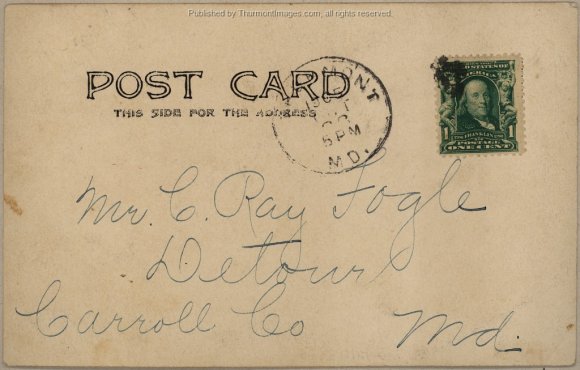 Published by ThurmontImages.com, all rights reserved.
POST CARD
THIS SIDE FOR THE ADDRESS
MONT
5 PM
MD.
FRANKLIN
1 1
POSTAGE
ONE CENT
Mr. C. Ray Fogle
Detour
Carroll Co Md.